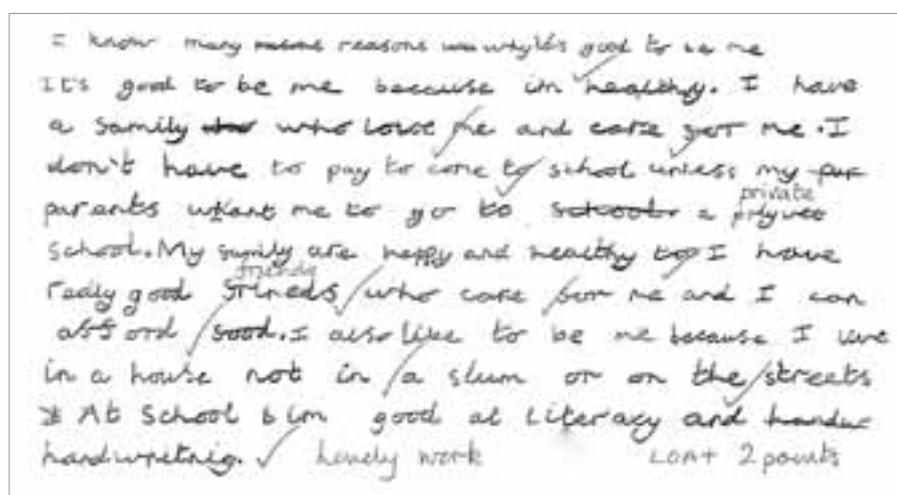 I know many reasons why it's good to be me
It's good to be me because im healthy. I have
a family who love me and care for me. I
don't have to pay to come to school unless my
parents want me to go to a private
school. My family are happy and healthy to I have
really good friends who care for me and I can
afford food. I also like to be me because I live
in a house not in a slum or on the streets
At School I'm good at Literacy and
handwriting. Lovely work 2 points